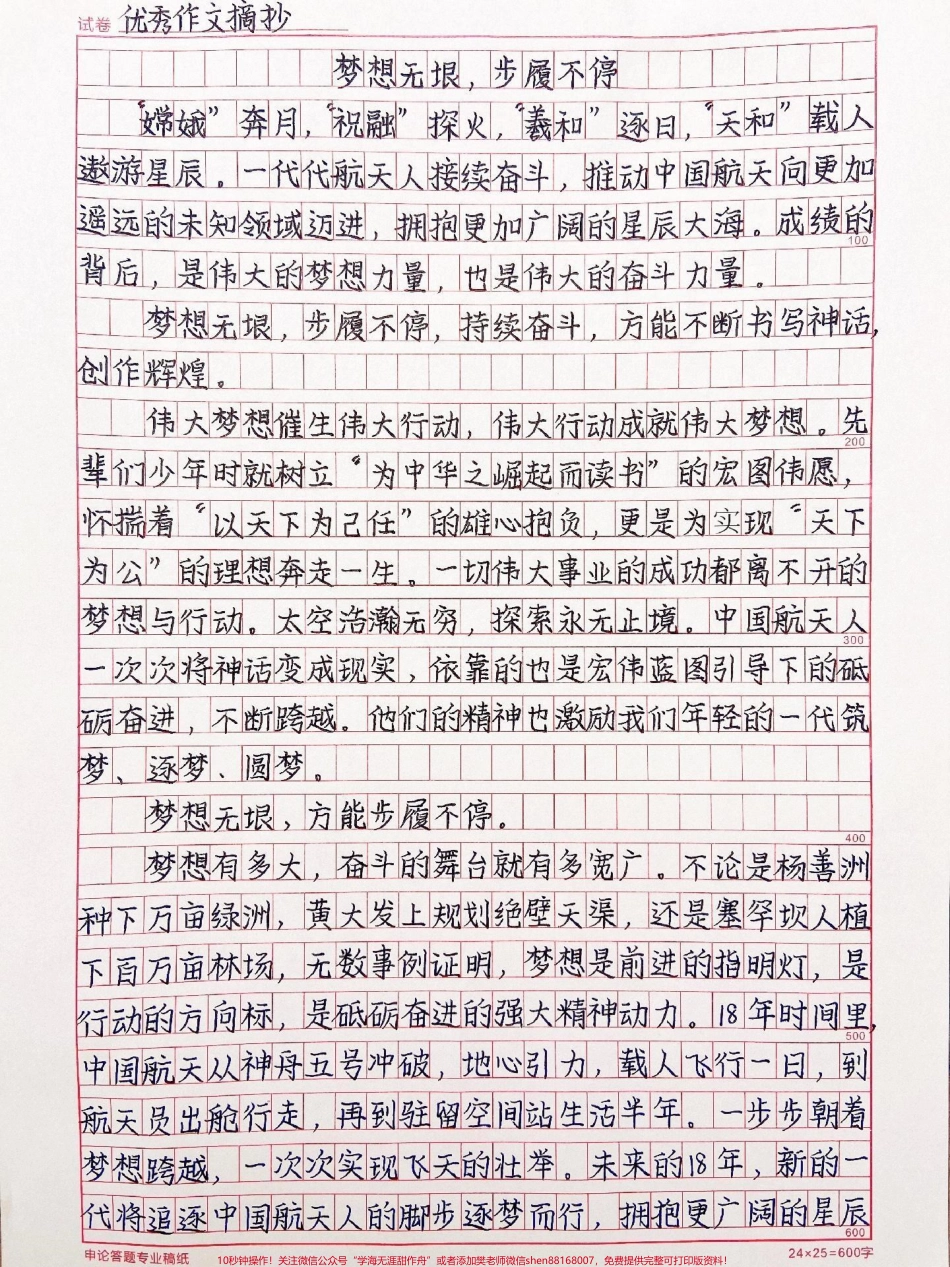 试卷 优秀作文摘抄
梦想无垠，步履不停
“嫦娥”奔月，“祝融”探火，“羲和”逐日，“天和”载人
遨游星辰。一代代航天人接续奋斗，推动中国航天向更加
遥远的未知领域迈进，拥抱更加广阔的星辰大海。成绩的
100
背后，是伟大的梦想力量，也是伟大的奋斗力量。
梦想无垠，步履不停，持续奋斗，方能不断书写神话，
创作辉煌。
伟大梦想催生伟大行动，伟大行动成就伟大梦想。先
200
辈们少年时就树立“为中华之崛起而读书”的宏图伟愿，
怀揣着“以天下为己任”的雄心抱负，更是为实现“天下
为公”的理想奔走一生。一切伟大事业的成功都离不开的
梦想与行动。太空浩瀚无穷，探索永无止境。中国航天人
300
一次次将神话变成现实，依靠的也是宏伟蓝图引导下的砥
砺奋进，不断跨越。他们的精神也激励我们年轻的一代筑
梦、逐梦、圆梦。
梦想无垠，方能步履不停。
400
梦想有多大，奋斗的舞台就有多宽广。不论是杨善洲
种下万亩绿洲，黄大发上规划绝壁天渠，还是塞罕坝人植
下百万亩林场，无数事例证明，梦想是前进的指明灯，是
行动的方向标，是砥砺奋进的强大精神动力。18年时间里，
500
中国航天从神舟五号冲破，地心引力，载人飞行一日，到
航天员出舱行走，再到驻留空间站生活半年。一步步朝着
梦想跨越，一次次实现飞天的壮举。未来的18年，新的一
代将追逐中国航天人的脚步逐梦而行，拥抱更广阔的星辰
600
申论答题专业稿纸 10秒钟操作！关注微信公众号“学海无涯甜作舟”或者添加樊老师微信shen88168007，免费提供完整可打印版资料！ 24×25=600字